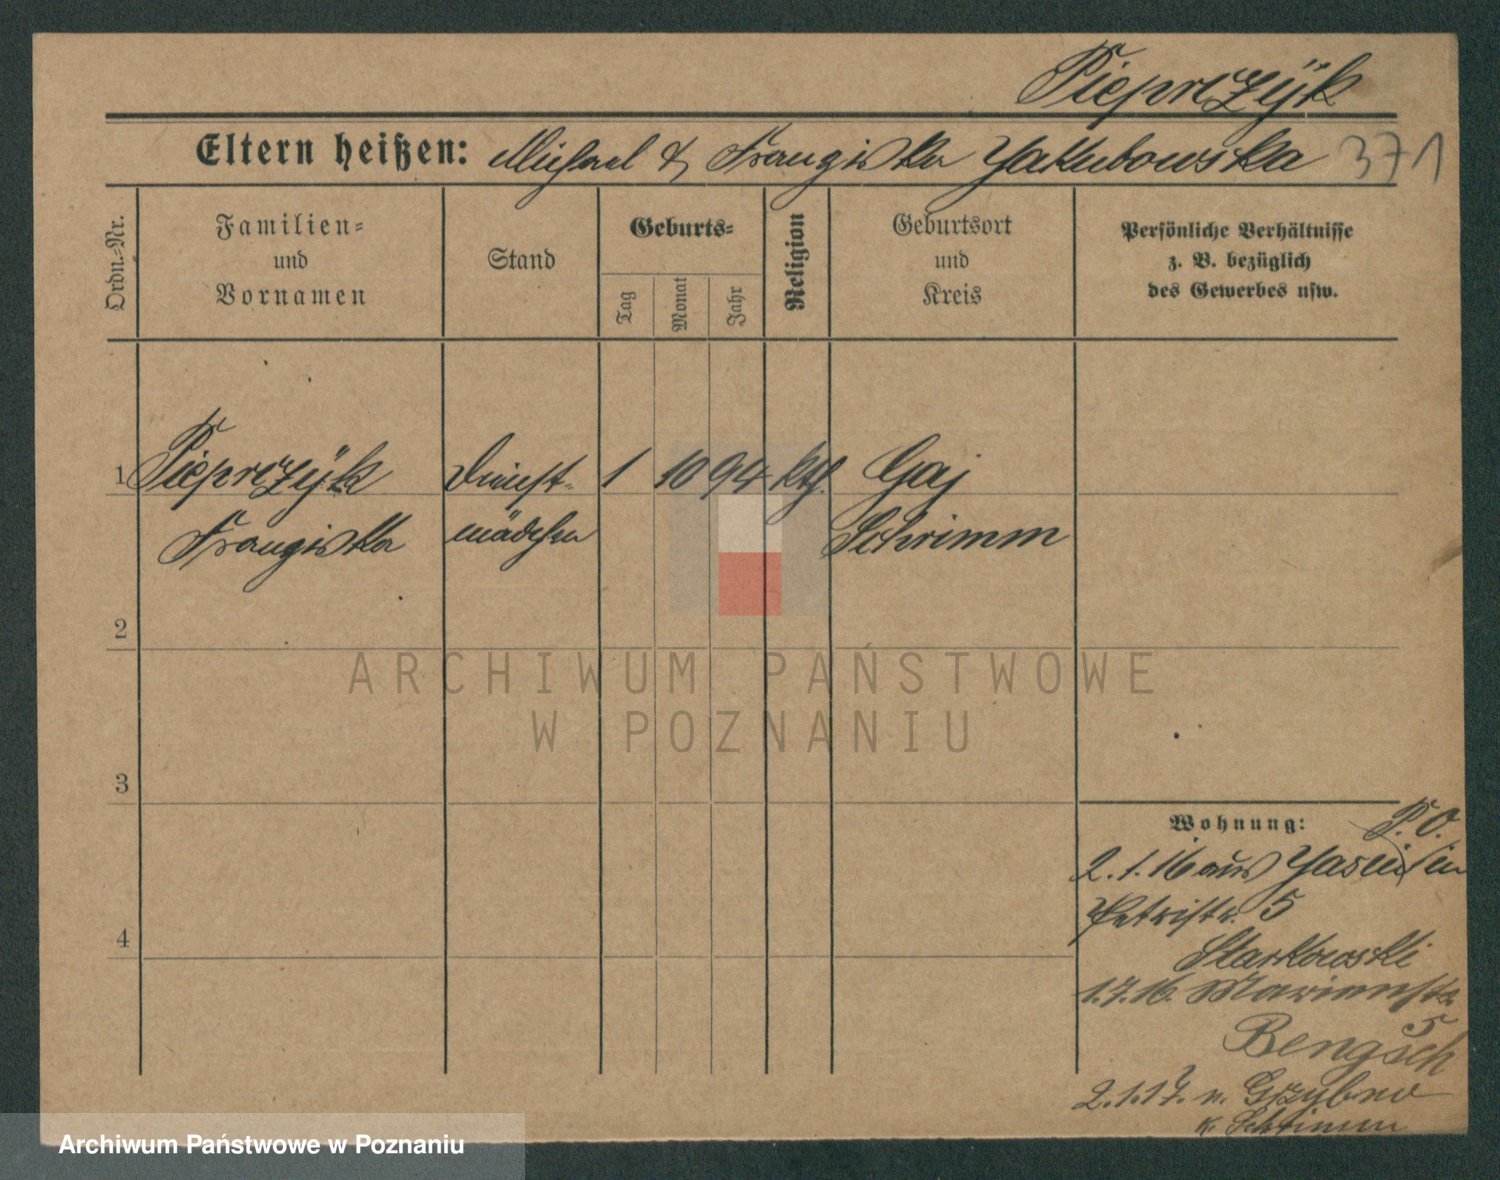 Pieprczÿk
Eltern heißen: Michael & Franziska Yakubowska 371
Ordn.=Nr.
Familien=
und
Vornamen
Stand
Geburts=
Tag
Monat
Jahr
Religion
Geburtsort
und
Kreis
Persönliche Verhältnisse
z. B. bezüglich
des Gewerbes usw.
1 Pieprczÿk Dienst= 1 10 94 kth. Gaj
Franziska mädchen Schrimm
2
3
4
Wohnung: P. O.
2.1.16 aus in
Petristr. 5
Starkowski
1.7.16. Marienstr.
5
Bengsch
2.1.17. n. Grzybno
K. Schrimm
ARCHIWUM PAŃSTWOWE
W POZNANIU
Archiwum Państwowe w Poznaniu